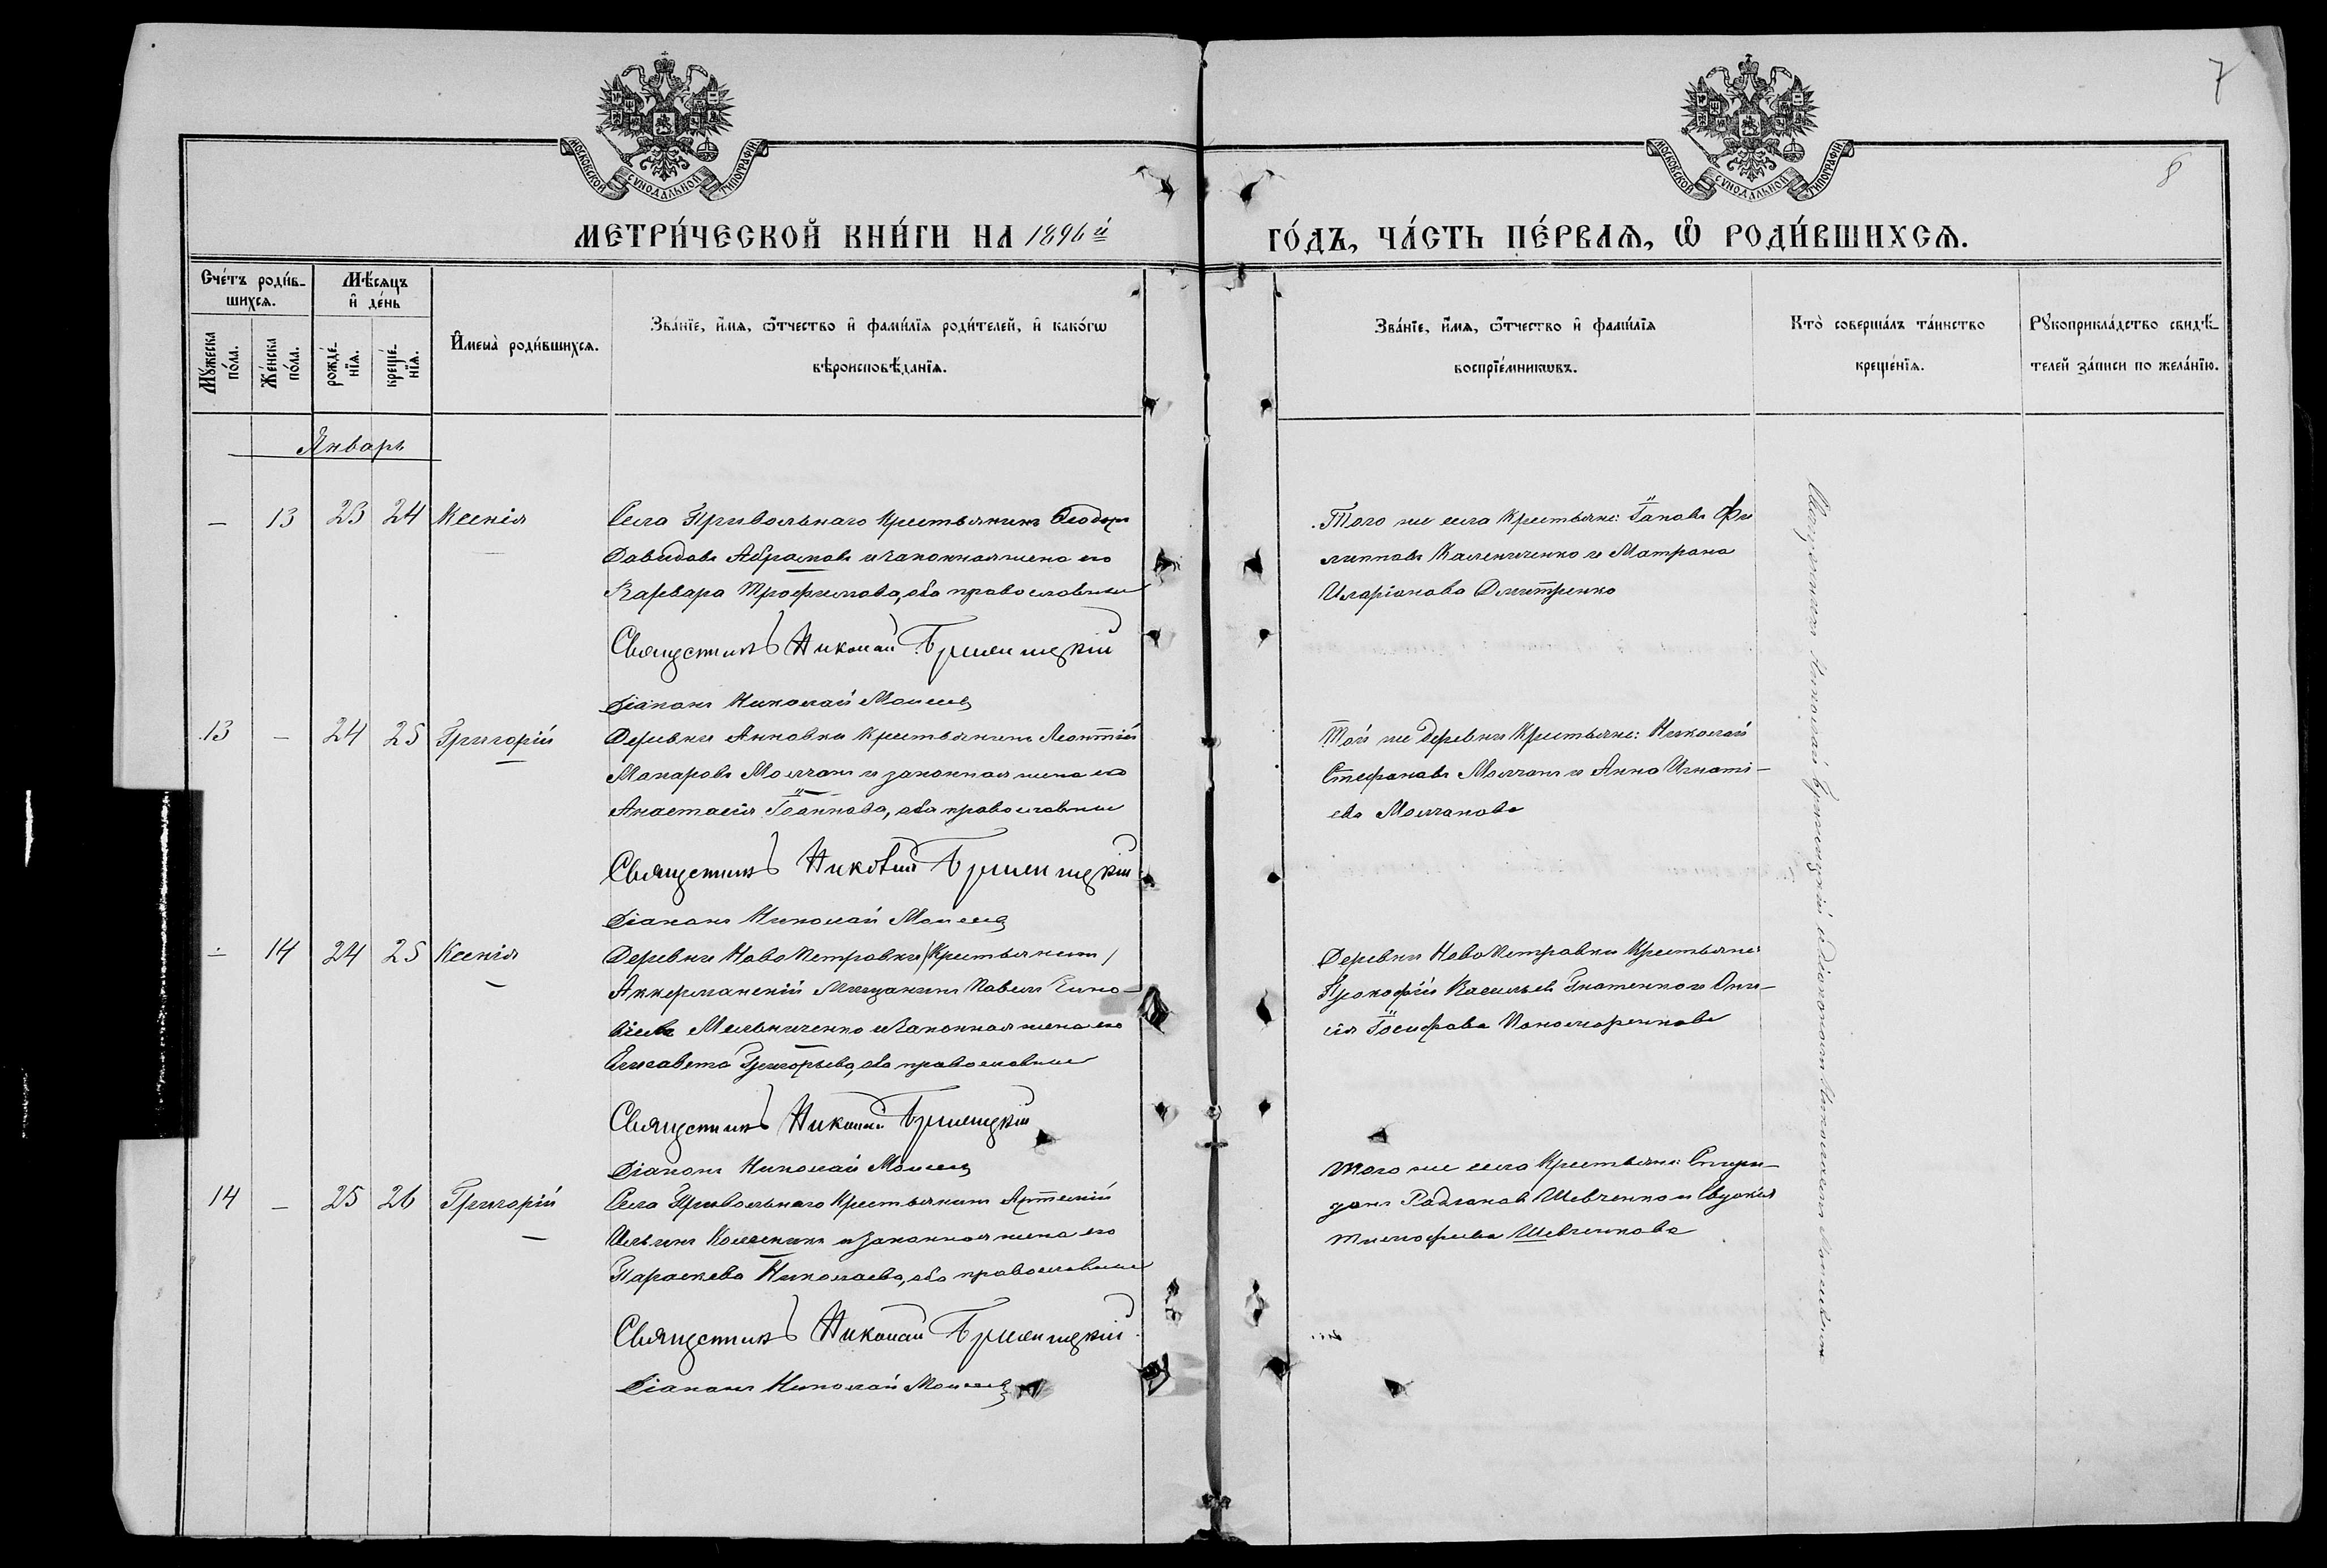 7
8
МОСКОВСКОЙ СѴНОДАЛЬНОЙ ТИПОГРАФІИ
МОСКОВСКОЙ СѴНОДАЛЬНОЙ ТИПОГРАФІИ
МЕТРИ́ЧЕСКОЙ КНИ́ГИ НА 1896й ГО́ДЪ, ЧА́СТЬ ПЕ́РВАѦ, Ѽ РОДИ́ВШИХСѦ.
Сче́тъ роди́в-
шихсѧ.
Мѣ́сѧцъ
и҆ де́нь
Мꙋ́жеска по́ла.
Же́нска по́ла.
рожде́-
нїѧ.
креще́-
нїѧ.
И҆мена̀ роди́вшихсѧ.
Зва́нїе, и҆́мѧ, ѻ҆́тчество и҆ фами́лїѧ роди́телей, и҆ како́гѡ
вѣроисповѣ́данїѧ.
Зва́нїе, и҆́мѧ, ѻ҆́тчество и҆ фами́лїѧ
воспрїе́мникѡвъ.
Кто̀ соверша́лъ та́инство
креще́нїѧ.
Рꙋкоприкла́дство свидѣ́-
телей за́писи по жела́нїю.
Январь
— 13 23 24 Ксенія
Села Привольнаго крестьянинъ Ѳеодоръ
Давидовъ Абрамовъ и законная жена его
Варвара Трофимова, оба православные
Священникъ Николай
Діаконъ Николай Моисеевъ
Того же села крестьяне: Іаковъ Фи
липповъ Калениченко и Матрона
Иларіонова Дмитренко
13 — 24 25 Григорій
Деревни Анновки крестьянинъ Леонтій
Макаровъ Молчанъ и законная жена его
Анастасія Іоаннова, оба православные
Священникъ Николай
Діаконъ Николай Моисеевъ
Той же деревни крестьяне: Николай
Стефановъ Молчанъ и Анна Игнаті-
ева Молчанова
— 14 24 25 Ксенія
Деревни Новопетровки (крестьянинъ)
Аккерманскій мѣщанинъ Павелъ
Мельниченко и законная жена его
Елисавета Григорьева, оба православные
Священникъ Николай
Діаконъ Николай Моисеевъ
Деревни Новопетровки крестьяне
Прокофій Васильевъ Гнатенко и Они-
сія Іосифова Пономаренкова
14 — 25 26 Григорій
Села Привольнаго крестьянинъ Артемій
Ильинъ и законная жена его
Параскева Николаева, оба православные
Священникъ Николай
Діаконъ Николай Моисеевъ
Того же села крестьяне: Спири-
донъ Шевченко и Евдокія
Тимофеева Шевченкова
Священникъ Николай